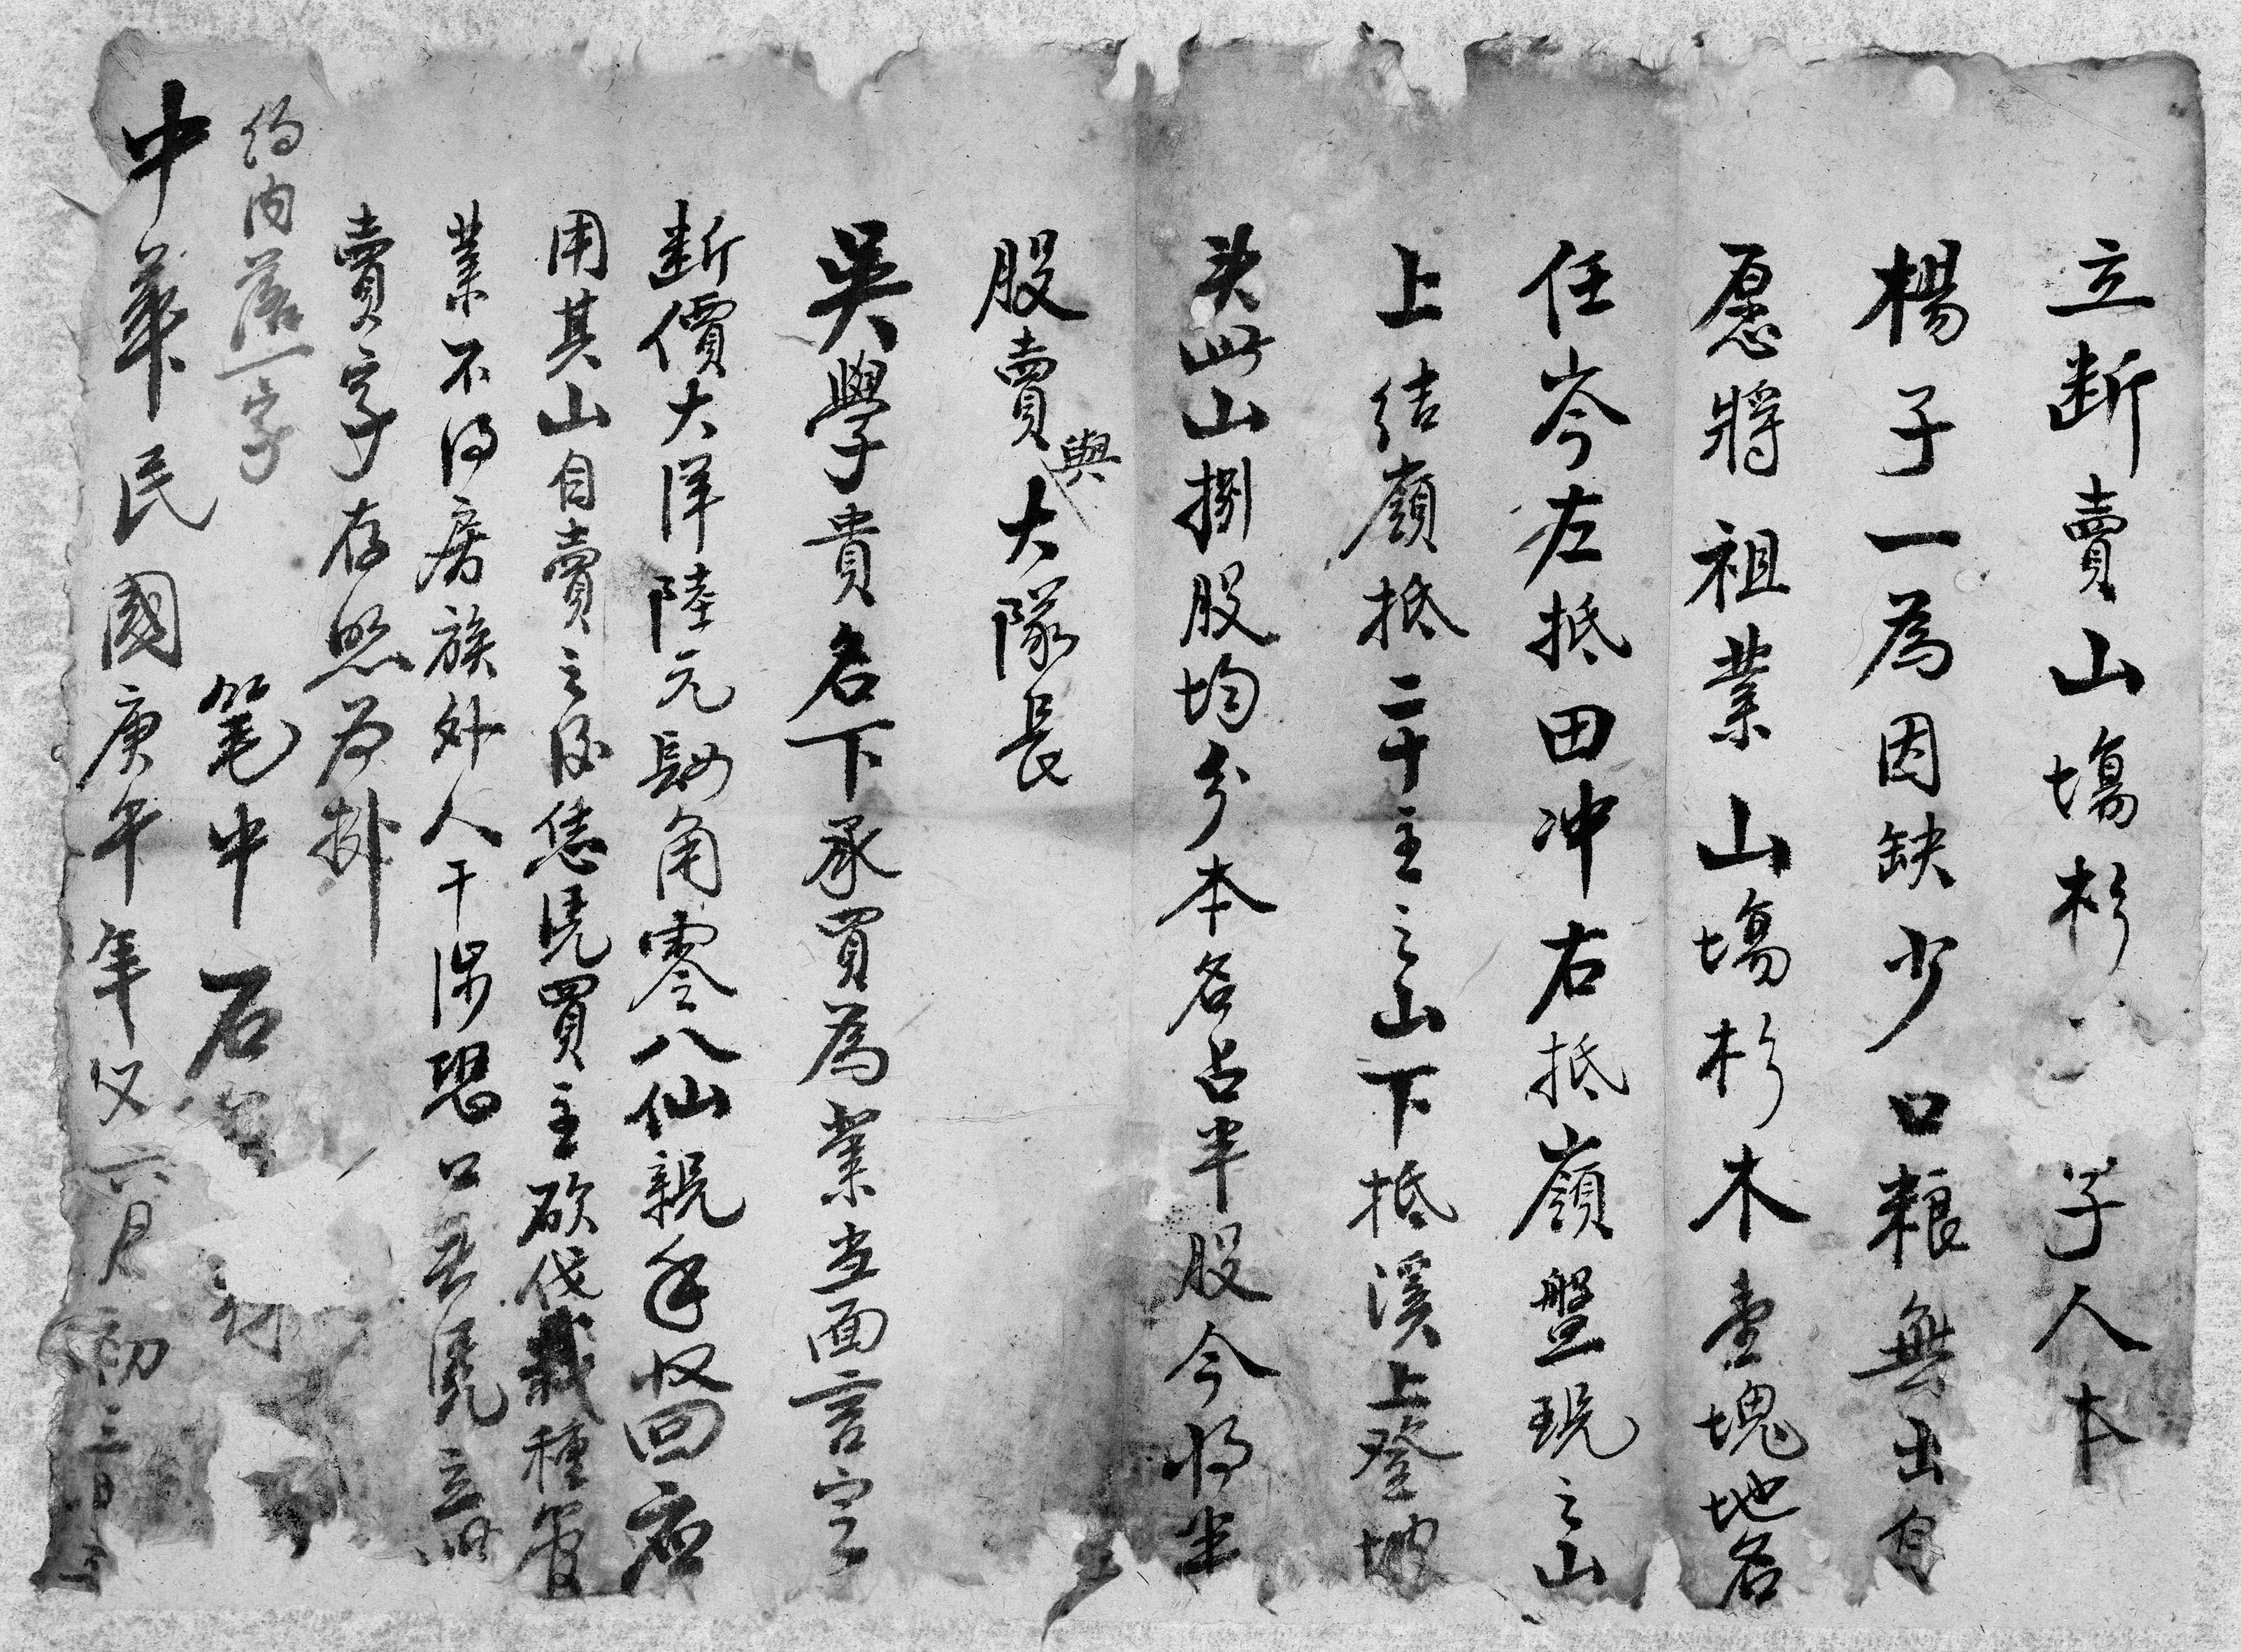 立断賣山塲杉字人本
楊子一為因缺少口粮無出自
愿將祖業山塲杉木壹塊地名
任岑左抵田冲右抵嶺盤玩之山
上结嶺抵二十主之山下抵溪上登坡
头此山捌股均分本名占半股今将半
股賣與大隊長
吴學貴名下承買為業当面言定
断價大洋陸元肆角零八仙親手收回应
用其山自賣之後恁凭買主砍伐栽種管
業不得房族外人干涉恐口无凭立断
賣字存照为掛
约内落一字
笔中石
中華民國庚午年又六月初三日立